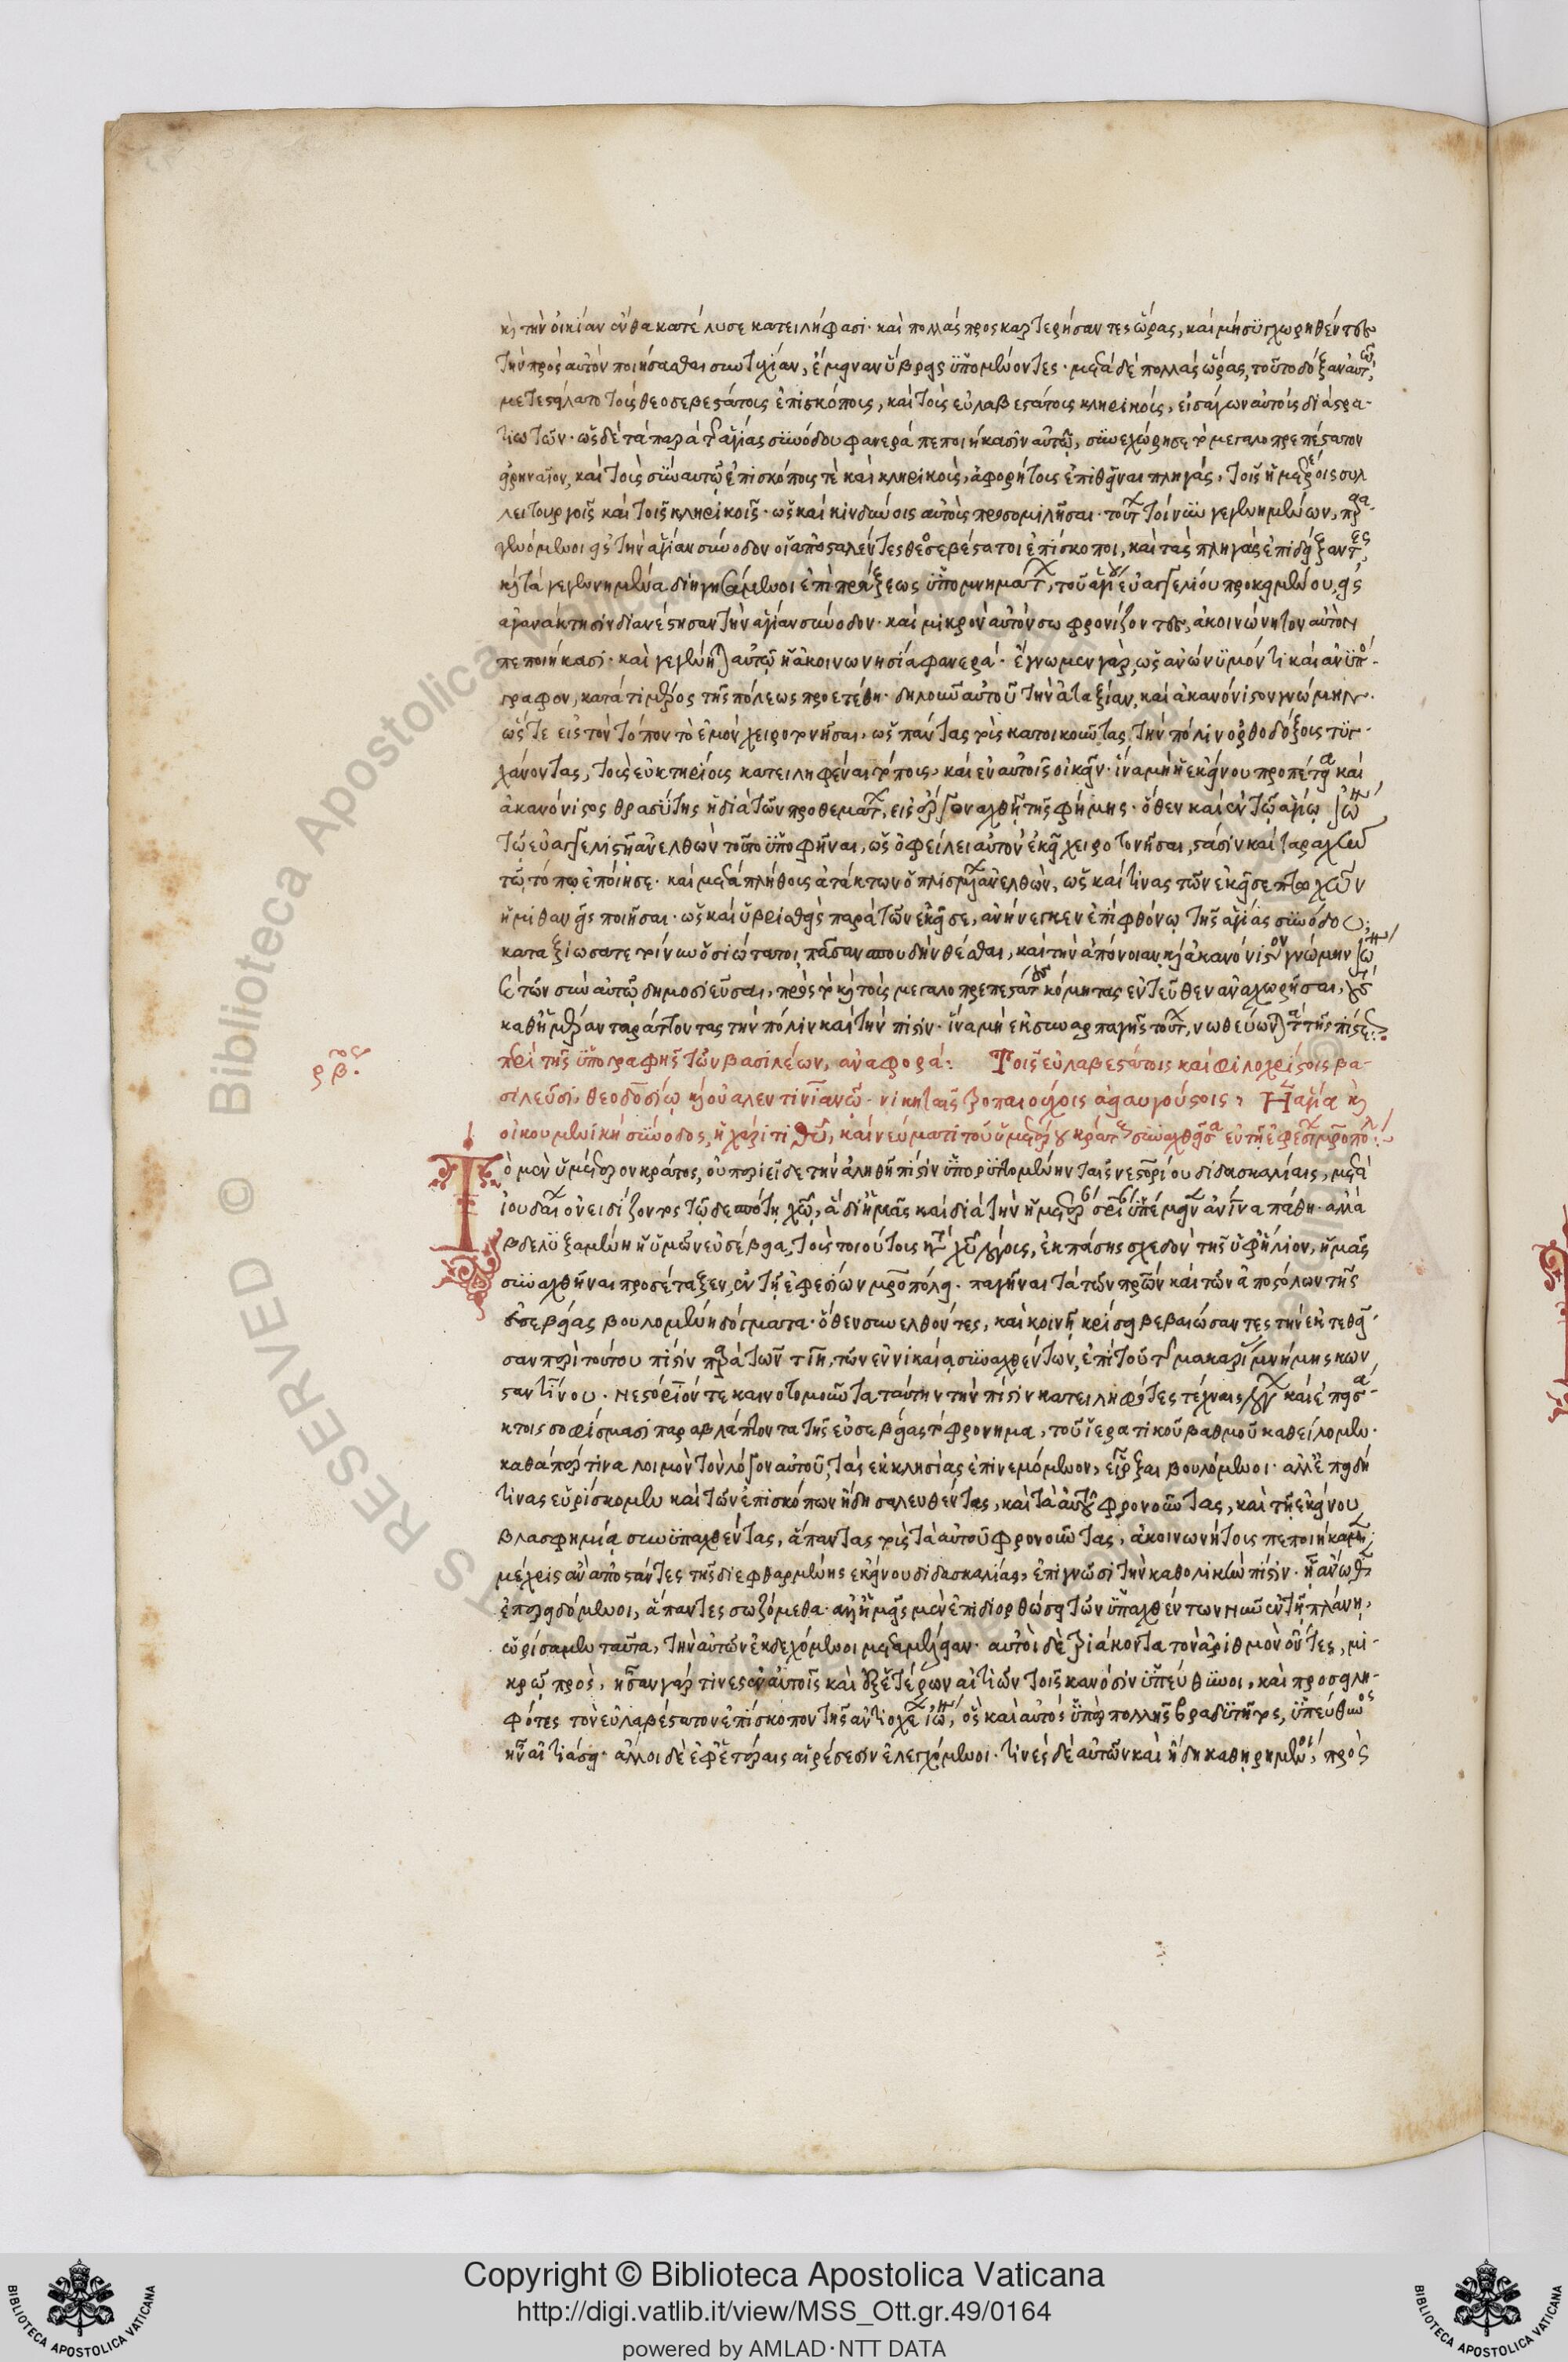 κ(αὶ) τὴν οἰκίαν ἔνθα κατέλυσε κατειλήφασι· καὶ πολλὰς προσκαρτερήσαντες ὥρας, καὶ μὴ συγχωρηθέντες
τὴν πρὸς αὐτὸν ποιήσασθαι συντυχίαν, ἔμειναν ὕβρεις ὑπομένοντες· μετὰ δὲ πολλὰς ὥρας, τοῦτο δόξαν αὐτῷ,
μετεστείλατο τοὺς θεοσεβεστάτοις ἐπισκόποις, καὶ τοὺς εὐλαβεστάτοις κληρικοῖς, εἰσαγων αὐτοὺς διὰ στρα-
τιωτῶν· ὡς δὲ τὰ παρὰ τῆς ἁγίας συνόδου φανερὰ πεποιήκασιν αὐτῷ, συνεχώρησε τὸν μεγαλοπρεπέστατον
εἰρηναῖον, καὶ τοῖς σὺν αὐτῷ ἐπισκόποις τὲ καὶ κληρικοῖς, ἀφορήτοις ἐπιθεῖναι πληγάς, τοῖς ἡμετέροις συλ
λειτουργοῖς καὶ τοῖς κληρικοῖς· ὡς καὶ κινδύνοις αὐτοὺς προσομιλῆσαι· τούτων τοίνυν γεγενημένων, παρα-
γενόμενοι εἰς τὴν ἁγίαν σύνοδον οἱ ἀποσταλέντες θεοσεβέστατοι ἐπίσκοποι, καὶ τὰς πληγὰς ἐπιδείξαντες,
κ(αὶ) τὰ γεγενημένα διηγησάμενοι ἐπὶ πράξεως ὑπομνημάτων, τοῦ ἁγίου εὐαγγελίου προκειμένου, εἰς
ἀγανάκτησιν διανέστησαν τὴν ἁγίαν σύνοδον· καὶ μικρὸν αὐτὸν σωφρονίζοντες, ἀκοινώνητον αὐτὸν
πεποιήκασι· καὶ γεγένηται αὐτῷ ἡ ἀκοινωνησία φανερά· ἔγνωμεν γὰρ, ὡς ἀνώνυμόν τι καὶ ἀνυπό-
γραφον, κατά τι μέρος τῆς πόλεως προετέθη· δηλοῦν αὐτοῦ τὴν ἀταξίαν, καὶ ἀκανόνιστον γνώμην·
ὥστε εἰς τὸν τόπον τὸ ἐμὸν χειροτονῆσαι, ὡς πάντας τοὺς κατοικοῦντας τὴν πόλιν ὀρθοδόξοις τυγ-
χάνοντας, τοὺς εὐκτηρίοις κατειληφέναι τόποις, καὶ ἐν αὐτοῖς οἰκεῖν· ἵνα μὴ ἡ ἐκείνου προπέτεια καὶ
ἀκανόνιστος θρασύτης ἡ διὰ τῶν προθεμάτων, εἰς ἔργον ἀχθῇ τῆς φήμης· ὅθεν καὶ ἐν τῷ ἁγίῳ ἰωάννῃ
τῷ εὐαγγελιστῇ ἀνελθὼν τοῦτο ὑποφῆναι, ὡς ὀφείλει αὐτὸν ἐκεῖ χειροτονῆσαι, στάσιν καὶ ταραχὴν
τῷ τόπῳ ἐποίησε· καὶ μετὰ πλήθοις ἀτάκτων ὁπλισμένων ἀνελθὼν, ὡς καί τινας τῶν ἐκεῖσε πτωχῶν
ἡμιθανεῖς ποιῆσαι· ὡς καὶ ὑβρισθεὶς παρὰ τῶν ἐκεῖσε, ἀνήνεγκεν ἐπὶ φθόνῳ τῆς ἁγίας συνόδου·
καταξιώσατε τοίνυν ὁσιώτατοι, πᾶσαν σπουδὴν θέσθαι, καὶ τὴν ἀπόνοιαν κ(αὶ) ἀκανόνιστον γνώμην ἰωάννου
κ(αὶ) τῶν σὺν αὐτῷ δημοσιεῦσαι, πρὸς τὸ κ(αὶ) τοὺς μεγαλοπρεπεστάτους κόμητας ἐντεῦθεν ἀναχωρῆσαι, τοὺς
καθ' ἡμέραν ταράττοντας τὴν πόλιν καὶ τὴν πίστιν· ἵνα μὴ ἐκ συναρπαγῆς τούτων, νωθεύωνται τὰ τῆς πίστεως:
περὶ τῆς ὑπογραφῆς τῶν βασιλέων, ἀναφορά: Τοῖς εὐλαβεστάτοις καὶ φιλοχρίστοις βα-
σιλεῦσι, θεοδοσίῳ κ(αὶ) οὐαλεντινιανῷ· νικηταῖς τροπαιούχοις ἀειαυγούστοις, Ἡ ἁγία κ(αὶ)
οἰκουμενικὴ σύνοδος, ἡ χάριτι θεοῦ, καὶ νεύματι τοῦ ὑμετέρου κράτους συναχθεῖσα ἐν τῇ ἐφεσίων μητροπόλει:
Τὸ μὲν ὑμέτερον κράτος, οὐ περιεῖδε τὴν ἀληθῆ πίστιν ὑπορυττομένην ταῖς νεστορίου διδασκαλίαις, μετὰ
ἰουδαίων ὀνειδίζοντος τῷ δεσπότῃ χ(ριστ)ῷ, ἃ δι' ἡμᾶς καὶ διὰ τὴν ἡμετέραν σωτηρίαν ὑπέμεινεν ἀνθρώπινα πάθη· ἀλλὰ
βδελυξαμένη ἡ ὑμῶν εὐσέβεια, τοὺς τοιούτοις κατὰ χ(ριστο)ῦ λόγοις, ἐκ πάσης σχεδὸν τῆς ὑφ' ἥλιον, ἡμᾶς
συναχθῆναι προσέταξεν, ἐν τῇ ἐφεσίων μητροπόλει· παγῆναι τὰ τῶν πατέρων καὶ τῶν ἀποστόλων τῆς
εὐσεβείας βουλομένη δόγματα· ὅθεν συνελθόντες, καὶ κοινῇ κρίσει βεβαιώσαντες τὴν ἐκτεθεῖ-
σαν περὶ τούτου πίστιν παρὰ τῶν τιη, τῶν ἐν νικαίᾳ συναχθέντων, ἐπὶ τοῦ τῆς μακαρίας μνήμης κων
σταντίνου· νεστόριόν τε καινοτομοῦντα ταύτην τὴν πίστιν κατειληφότες τέχναις λόγων καὶ ἐπεισά-
κτοις σοφίσμασι παραβλάπτοντα τῆς εὐσεβείας τὸ φρόνημα, τοῦ ἱερατικοῦ βαθμοῦ καθείλομεν·
καθάπερ τινα λοιμὸν τὸν λόγον αὐτοῦ, τὰς ἐκκλησίας ἐπινεμόμενον, εἶρξαι βουλόμενοι· ἀλλ' ἐπειδή
τινας εὑρίσκομεν καὶ τῶν ἐπισκόπων ἤδη σαλευθέντας, καὶ τὰ αὐτοῦ φρονοῦντας, καὶ τῇ ἐκείνου
βλασφημίᾳ συνυπαχθέντας, ἅπαντας τοὺς τὰ αὐτοῦ φρονοῦντας, ἀκοινωνήτοις πεποιήκαμεν,
μέχρις ἂν ἀποστάντες τῆς διεφθαρμένης ἐκείνου διδασκαλίας, ἐπιγνῶσι τὴν καθολικὴν πίστιν· ᾗ ἄνωθεν
ἐπερειδόμενοι, ἅπαντες σωζόμεθα· ἀλλ' ἡμεῖς μὲν ἐπιδιορθώσει τῶν ὑπαχθέντων νῦν ἐν τῇ πλάνῃ,
ὡρίσαμεν ταῦτα, τὴν αὐτῶν ἐκδεχόμενοι μεταμέλειαν· αὐτοὶ δὲ τριάκοντα τὸν ἀριθμὸν ὄντες, μι-
κρῷ πρὸς, ἦσαν γάρ τινες ἐν αὐτοῖς καὶ ἐξ ἑτέρων αἰτιῶν τοῖς κανόσιν ὑπεύθυνοι, καὶ προσειλη-
φότες τὸν εὐλαβέστατον ἐπίσκοπον τῆς ἀντιοχείας ἰωάννην, ὃς καὶ αὐτὸς ὑπὲρ πολλῆς βραδυτῆτος, ὑπεύθυνος
ἦν αἰτιάσει· ἄλλοι δὲ ἐφ' ἑτέραις αἱρέσεσιν ἐλεγχόμενοι· τινὲς δὲ αὐτῶν καὶ ἤδη καθῃρημένοι, πρὸς
Copyright © Biblioteca Apostolica Vaticana
http://digi.vatlib.it/view/MSS_Ott.gr.49/0164
powered by AMLAD·NTT DATA